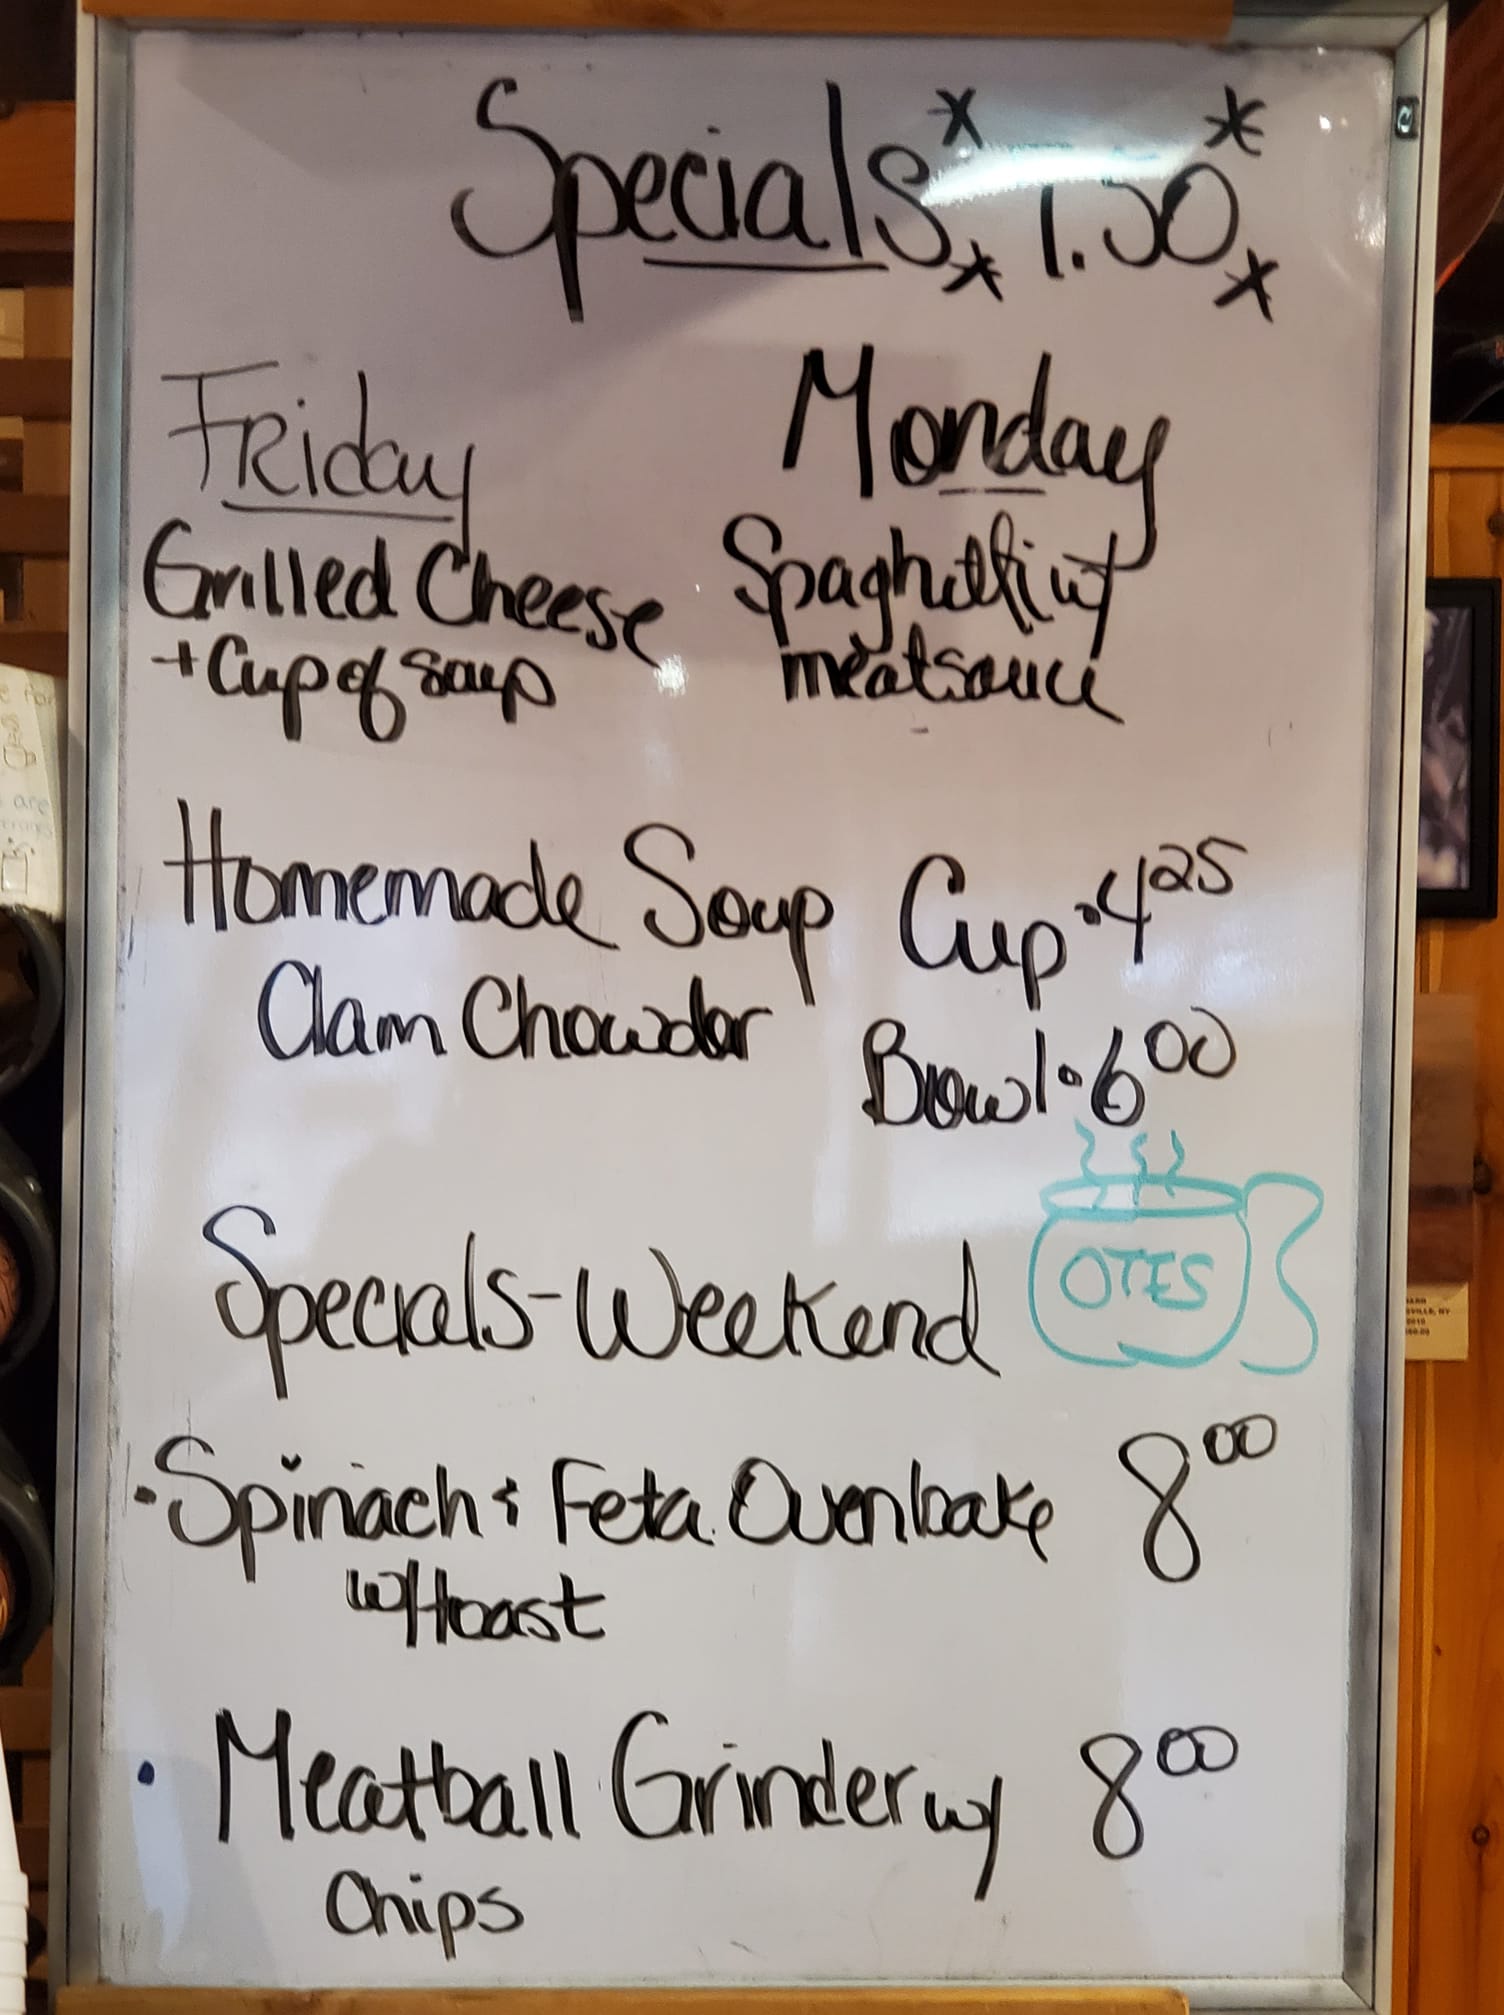 Specials * 7.50 *
* *
Friday
Monday
Grilled Cheese
+ Cup of Soup
Spaghetti w/
meatsauce
Homemade Soup Cup • 4 25
Clam Chowder
Bowl • 6 00
OTES
Specials - Weekend
• Spinach & Feta Ovenbake 8 00
w/ toast
• Meatball Grinder w/ 8 00
Chips